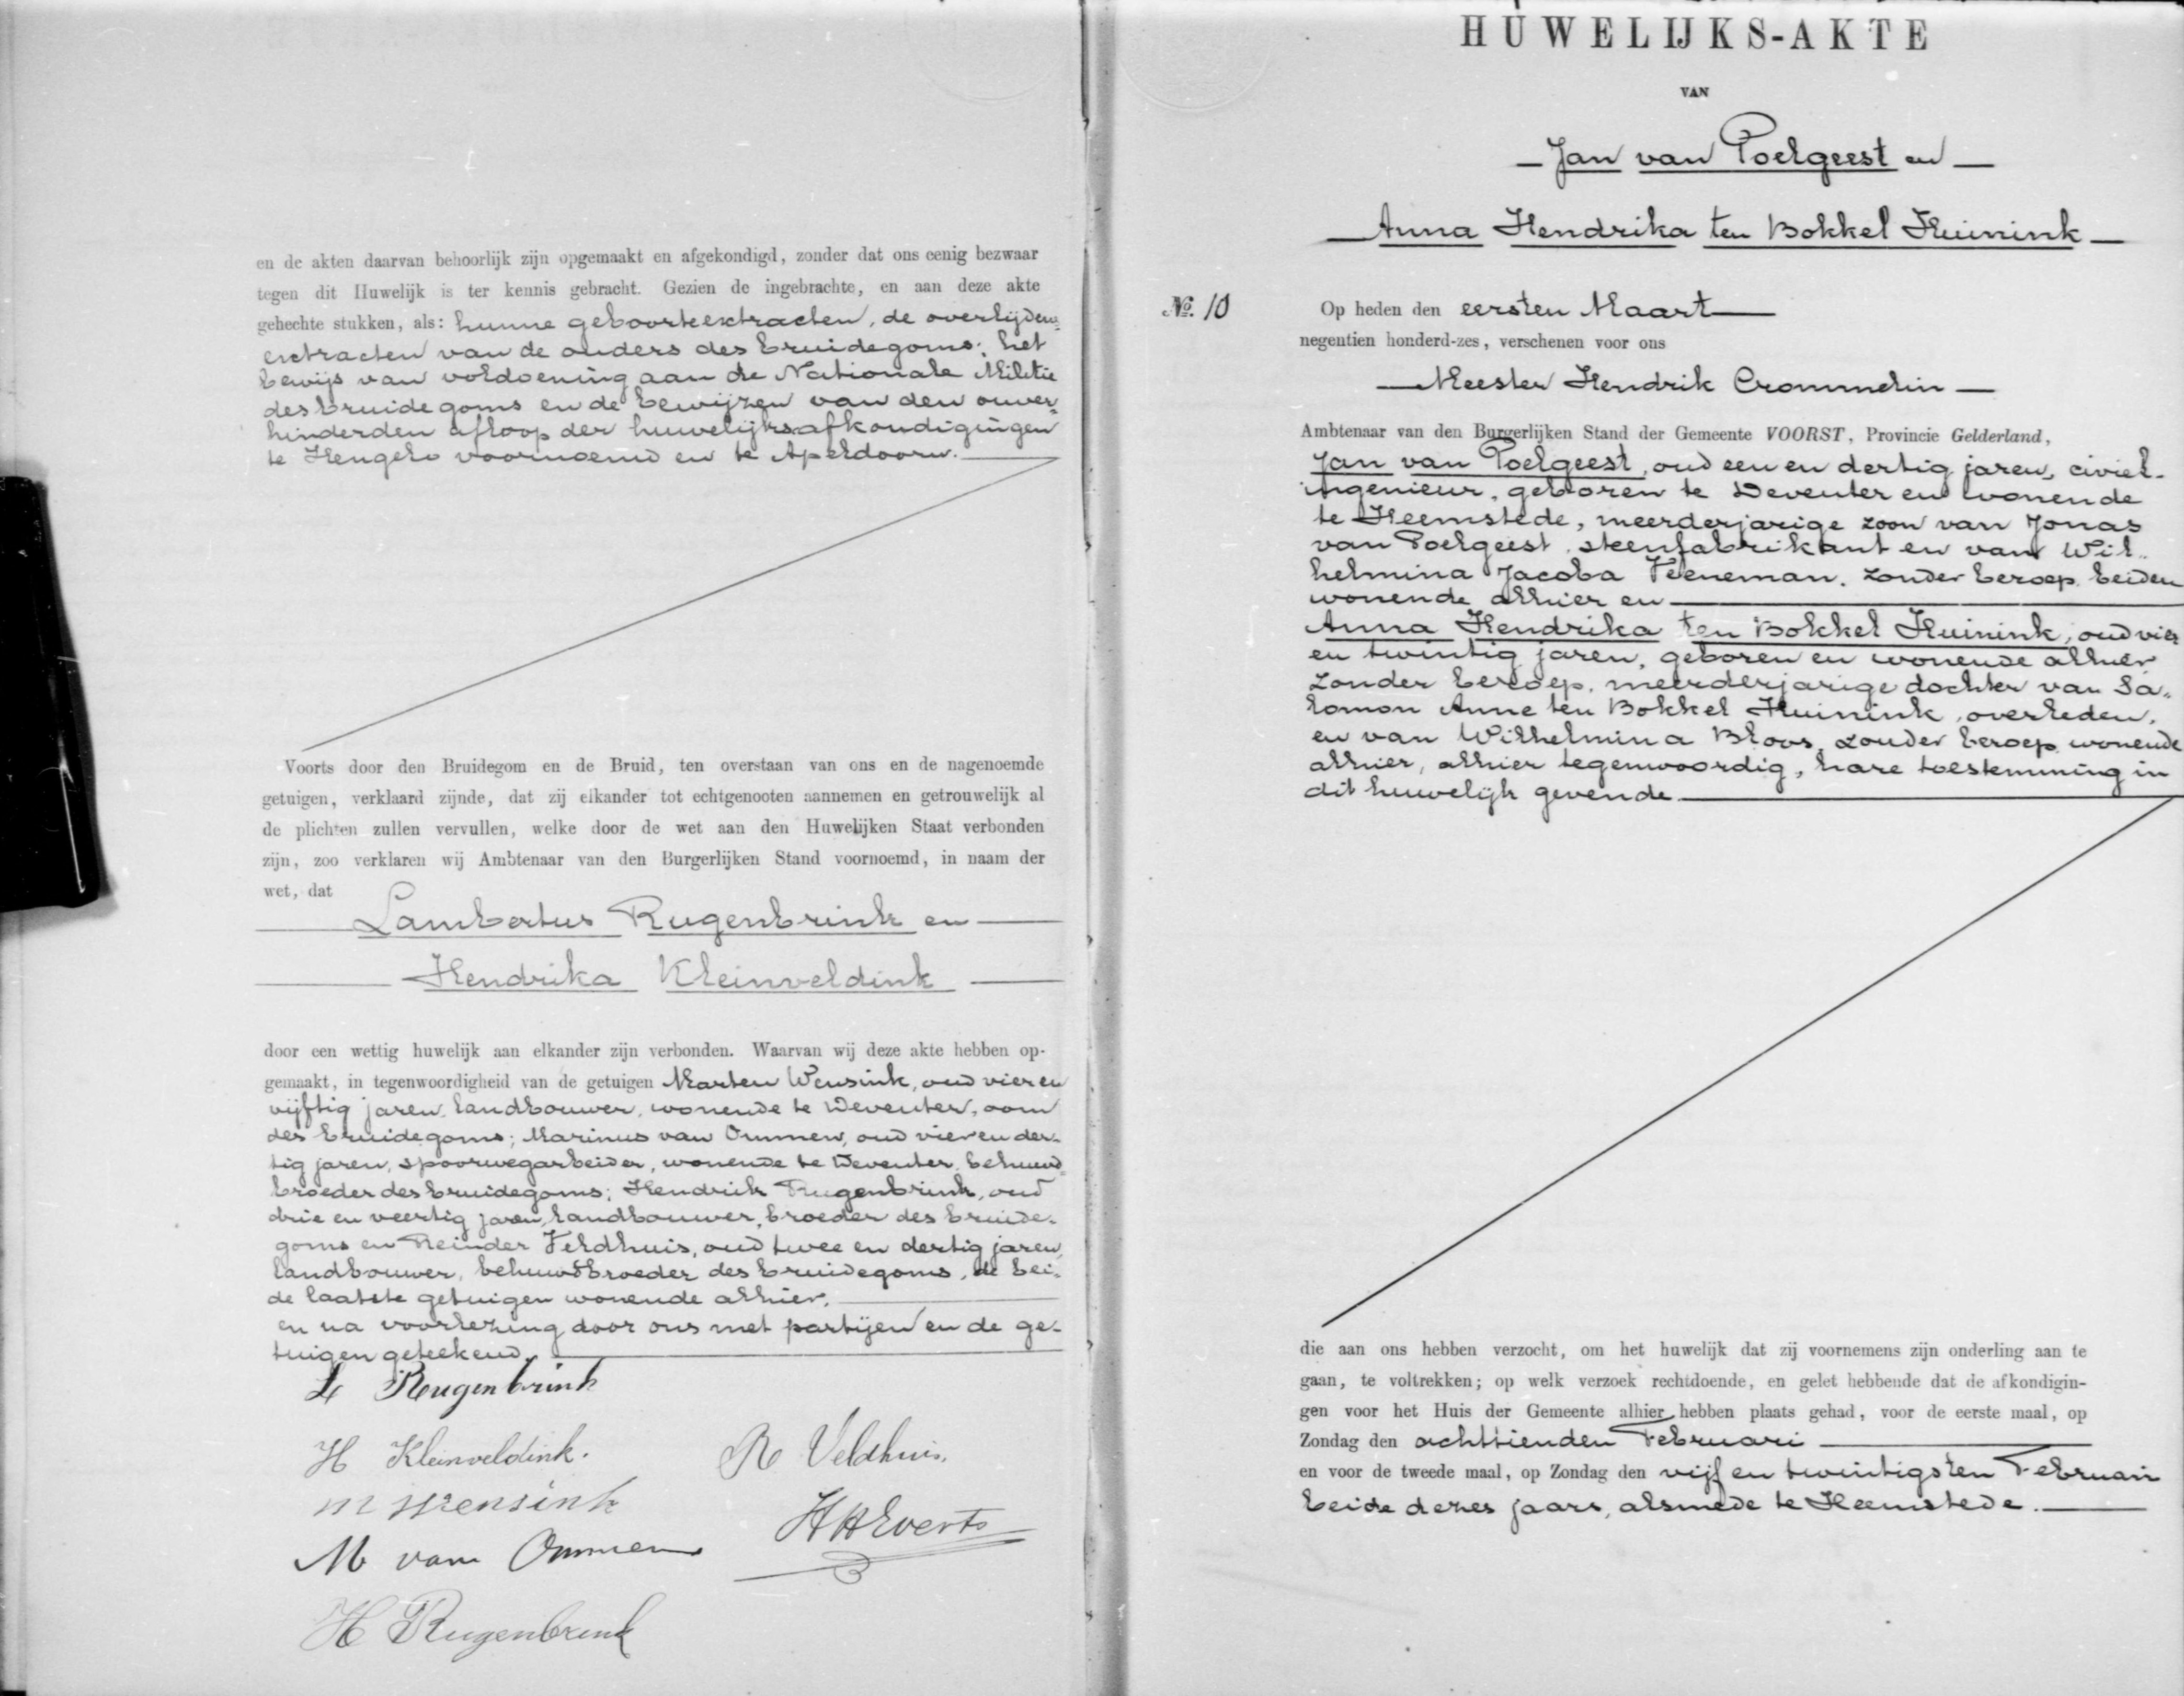 en de akten daarvan behoorlijk zijn opgemaakt en afgekondigd, zonder dat ons eenig bezwaar
tegen dit Huwelijk is ter kennis gebracht. Gezien de ingebrachte, en aan deze akte
gehechte stukken, als: hunne geboorteextracten, de overlijdens=
extracten van de ouders des bruidegoms; het
bewijs van voldoening aan de Nationale Militie
des bruidegoms en de bewijzen van den onver=
hinderden afloop der huwelijksafkondigingen
te Hengelo voornoemd en te Apeldoorn.
Voorts door den Bruidegom en de Bruid, ten overstaan van ons en de nagenoemde
getuigen, verklaard zijnde, dat zij elkander tot echtgenooten aannemen en getrouwelijk al
de plichten zullen vervullen, welke door de wet aan den Huwelijken Staat verbonden
zijn, zoo verklaren wij Ambtenaar van den Burgerlijken Stand voornoemd, in naam der
wet, dat
Lambertus Rugenbrink en
Hendrika Kleinveldink
door een wettig huwelijk aan elkander zijn verbonden. Waarvan wij deze akte hebben op-
gemaakt, in tegenwoordigheid van de getuigen Marten Wensink, oud vier en
vijftig jaren, landbouwer, wonende te Deventer, oom
des bruidegoms; Marinus van Ommen, oud vier en der-
tig jaren, spoorwegarbeider, wonende te Deventer, behuwd=
broeder des bruidegoms; Hendrik Rugenbrink, oud
drie en veertig jaren, landbouwer, broeder des bruide-
goms en Reinder Veldhuis, oud twee en dertig jaren,
landbouwer, behuwdbroeder des bruidegoms, de bei-
de laatste getuigen wonende alhier.
en na voorlezing door ons met partijen en de ge-
tuigen geteekend.
L Reugenbrink
H Kleinveldink.
R Veldhuis.
M Wensink
HHEverts
M van Ommen
H Rugenbrink
HUWELIJKS-AKTE
VAN
Jan van Poelgeest en
Anna Hendrika ten Bokkel Huinink
No. 10
Op heden den eersten Maart
negentien honderd-zes, verschenen voor ons
Meester Hendrik Crommelin
Ambtenaar van den Burgerlijken Stand der Gemeente VOORST, Provincie Gelderland,
Jan van Poelgeest, oud een en dertig jaren, civiel-
ingenieur, geboren te Deventer en wonende
te Heemstede, meerderjarige zoon van Jonas
van Poelgeest, steenfabrikant en van Wil-
helmina Jacoba Veeneman, zonder beroep, beiden
wonende alhier en
Anna Hendrika ten Bokkel Huinink, oud vier
en twintig jaren, geboren en wonende alhier
zonder beroep, meerderjarige dochter van Sa-
lomon Anne ten Bokkel Huinink, overleden,
en van Wilhelmina Bloos, zonder beroep, wonende
alhier, alhier tegenwoordig, hare toestemming in
dit huwelijk gevende.
die aan ons hebben verzocht, om het huwelijk dat zij voornemens zijn onderling aan te
gaan, te voltrekken; op welk verzoek rechtdoende, en gelet hebbende dat de afkondigin-
gen voor het Huis der Gemeente alhier hebben plaats gehad, voor de eerste maal, op
Zondag den achttienden Februari
en voor de tweede maal, op Zondag den vijf en twintigsten Februari
beide dezes jaars, alsmede te Heemstede.